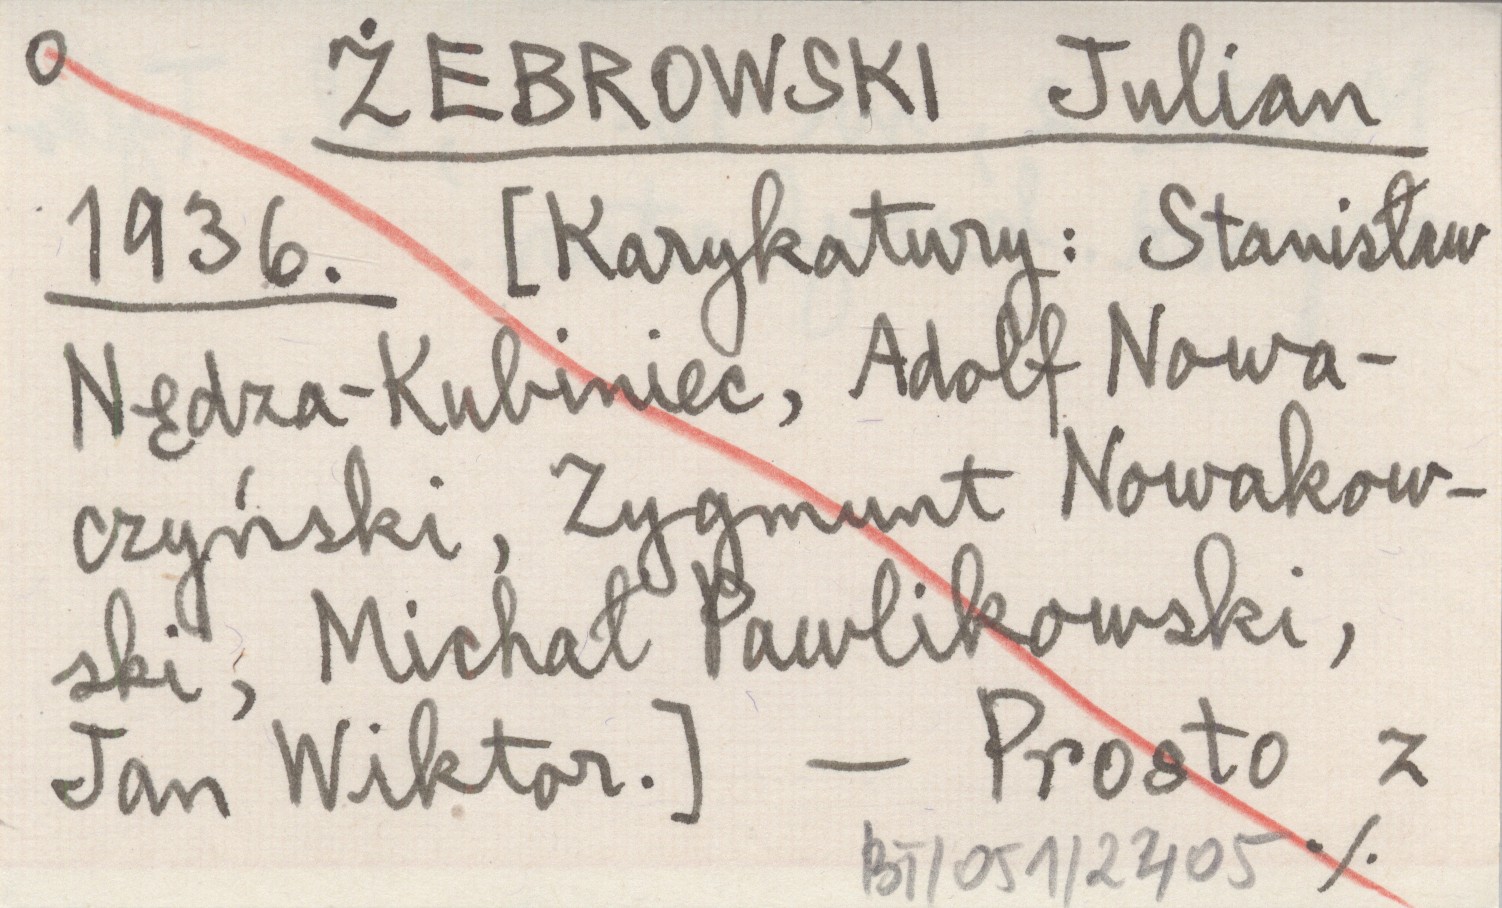 o ŻEBROWSKI Julian
1936. [Karykatury: Stanisław
Nędza-Kubiniec, Adolf Nowa-
czyński, Zygmunt Nowakow-
ski, Michał Pawlikowski,
Jan Wiktor.] — Prosto z
BT/051/22/05 ./.